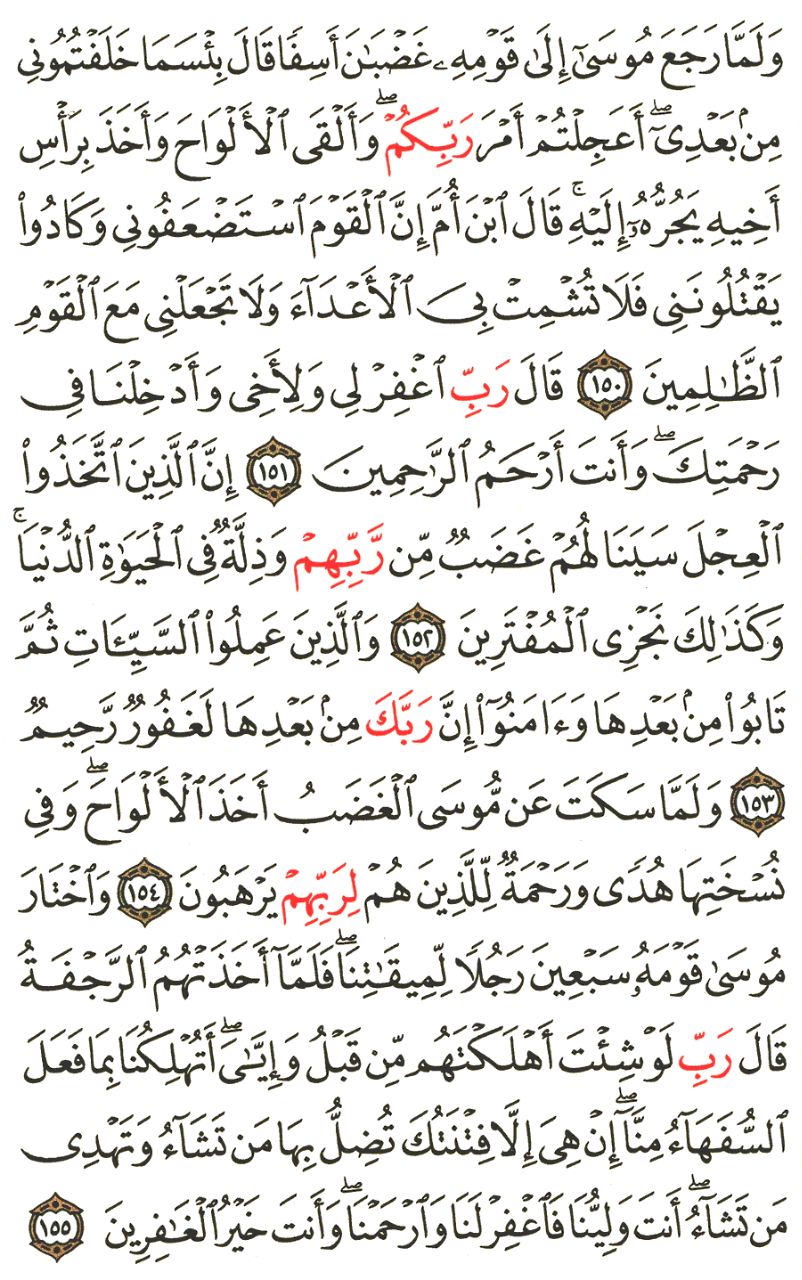 وَلَمَّا رَجَعَ مُوسَىٰٓ إِلَىٰ قَوْمِهِۦ غَضْبَٰنَ أَسِفٗا قَالَ بِئْسَمَا خَلَفْتُمُونِي
مِنۢ بَعْدِيٓۖ أَعَجِلْتُمْ أَمْرَ رَبِّكُمْۖ وَأَلْقَى ٱلْأَلْوَاحَ وَأَخَذَ بِرَأْسِ
أَخِيهِ يَجُرُّهُۥٓ إِلَيْهِۚ قَالَ ٱبْنَ أُمَّ إِنَّ ٱلْقَوْمَ ٱسْتَضْعَفُونِي وَكَادُوا۟
يَقْتُلُونَنِي فَلَا تُشْمِتْ بِيَ ٱلْأَعْدَآءَ وَلَا تَجْعَلْنِي مَعَ ٱلْقَوْمِ
ٱلظَّٰلِمِينَ ١٥٠ قَالَ رَبِّ ٱغْفِرْ لِي وَلِأَخِي وَأَدْخِلْنَا فِي
رَحْمَتِكَۖ وَأَنتَ أَرْحَمُ ٱلرَّٰحِمِينَ ١٥١ إِنَّ ٱلَّذِينَ ٱتَّخَذُوا۟
ٱلْعِجْلَ سَيَنَالُهُمْ غَضَبٞ مِّن رَّبِّهِمْ وَذِلَّةٞ فِي ٱلْحَيَوٰةِ ٱلدُّنْيَاۚ
وَكَذَٰلِكَ نَجْزِي ٱلْمُفْتَرِينَ ١٥٢ وَٱلَّذِينَ عَمِلُوا۟ ٱلسَّيِّـَٔاتِ ثُمَّ
تَابُوا۟ مِنۢ بَعْدِهَا وَءَامَنُوٓا۟ إِنَّ رَبَّكَ مِنۢ بَعْدِهَا لَغَفُورٞ رَّحِيمٞ
١٥٣ وَلَمَّا سَكَتَ عَن مُّوسَى ٱلْغَضَبُ أَخَذَ ٱلْأَلْوَاحَۖ وَفِي
نُسْخَتِهَا هُدٗى وَرَحْمَةٞ لِّلَّذِينَ هُمْ لِرَبِّهِمْ يَرْهَبُونَ ١٥٤ وَٱخْتَارَ
مُوسَىٰ قَوْمَهُۥ سَبْعِينَ رَجُلٗا لِّمِيقَٰتِنَاۖ فَلَمَّآ أَخَذَتْهُمُ ٱلرَّجْفَةُ
قَالَ رَبِّ لَوْ شِئْتَ أَهْلَكْتَهُم مِّن قَبْلُ وَإِيَّٰيَۖ أَتُهْلِكُنَا بِمَا فَعَلَ
ٱلسُّفَهَآءُ مِنَّآۖ إِنْ هِيَ إِلَّا فِتْنَتُكَ تُضِلُّ بِهَا مَن تَشَآءُ وَتَهْدِي
مَن تَشَآءُۖ أَنتَ وَلِيُّنَا فَٱغْفِرْ لَنَا وَٱرْحَمْنَاۖ وَأَنتَ خَيْرُ ٱلْغَٰفِرِينَ ١٥٥